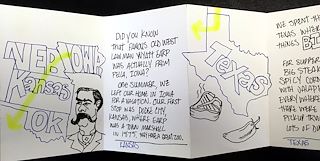 NEB
IOWA
Kansas
OK
DID YOU KNOW
THAT FAMOUS OLD WEST
LAW MAN WYATT EARP
WAS ACTUALLY FROM
PELLA, IOWA?
ONE SUMMER, WE
LEFT OUR HOME IN IOWA
FOR A VACATION. OUR FIRST
STOP WAS DODGE CITY,
KANSAS, WHERE EARP
WAS A TOWN MARSHALL
IN 1875.
KANSAS
TEXAS
WE SPENT
TEXAS WHERE
THINGS
FOR SUPPER
BIG STEAK
SPICY CORN
WITH JALAP
EVERYWHERE
THAN WERE
PICKUP TRU
LOTS OF
TEXAS